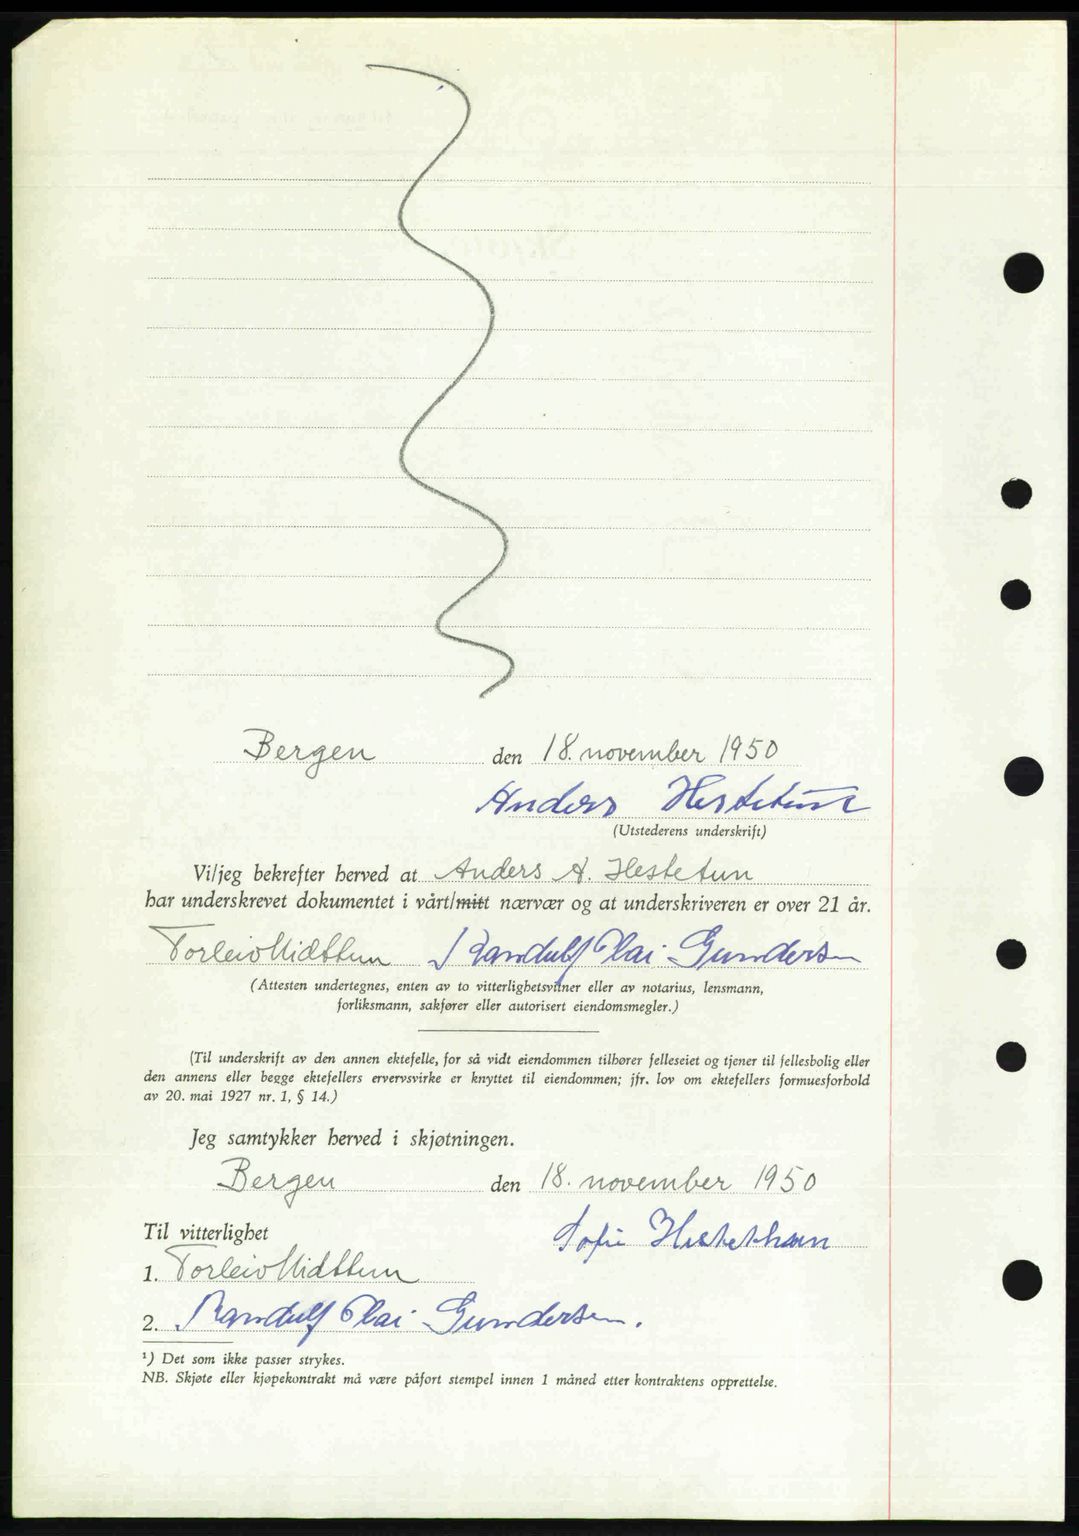 Bergen den 18. november 1950
Anders Hestetun
(Utstederens underskrift)
Vi/jeg bekrefter herved at Anders A. Hestetun
har underskrevet dokumentet i vårt/mitt nærvær og at underskriveren er over 21 år.
Torleiv Midttun Randulf Plai Gundersen
(Attesten undertegnes, enten av to vitterlighetsvitner eller av notarius, lensmann,
forliksmann, sakfører eller autorisert eiendomsmegler.)
(Til underskrift av den annen ektefelle, for så vidt eiendommen tilhører felleseiet og tjener til fellesbolig eller
den annens eller begge ektefellers ervervsvirke er knyttet til eiendommen; jfr. lov om ektefellers formuesforhold
av 20. mai 1927 nr. 1, § 14.)
Jeg samtykker herved i skjøtningen.
Bergen den 18. november 1950
Til vitterlighet
Sofie Hestethun
1. Torleiv Midttun
2. Randulf Plai Gundersen.
¹) Det som ikke passer strykes.
NB. Skjøte eller kjøpekontrakt må være påført stempel innen 1 måned etter kontraktens opprettelse.